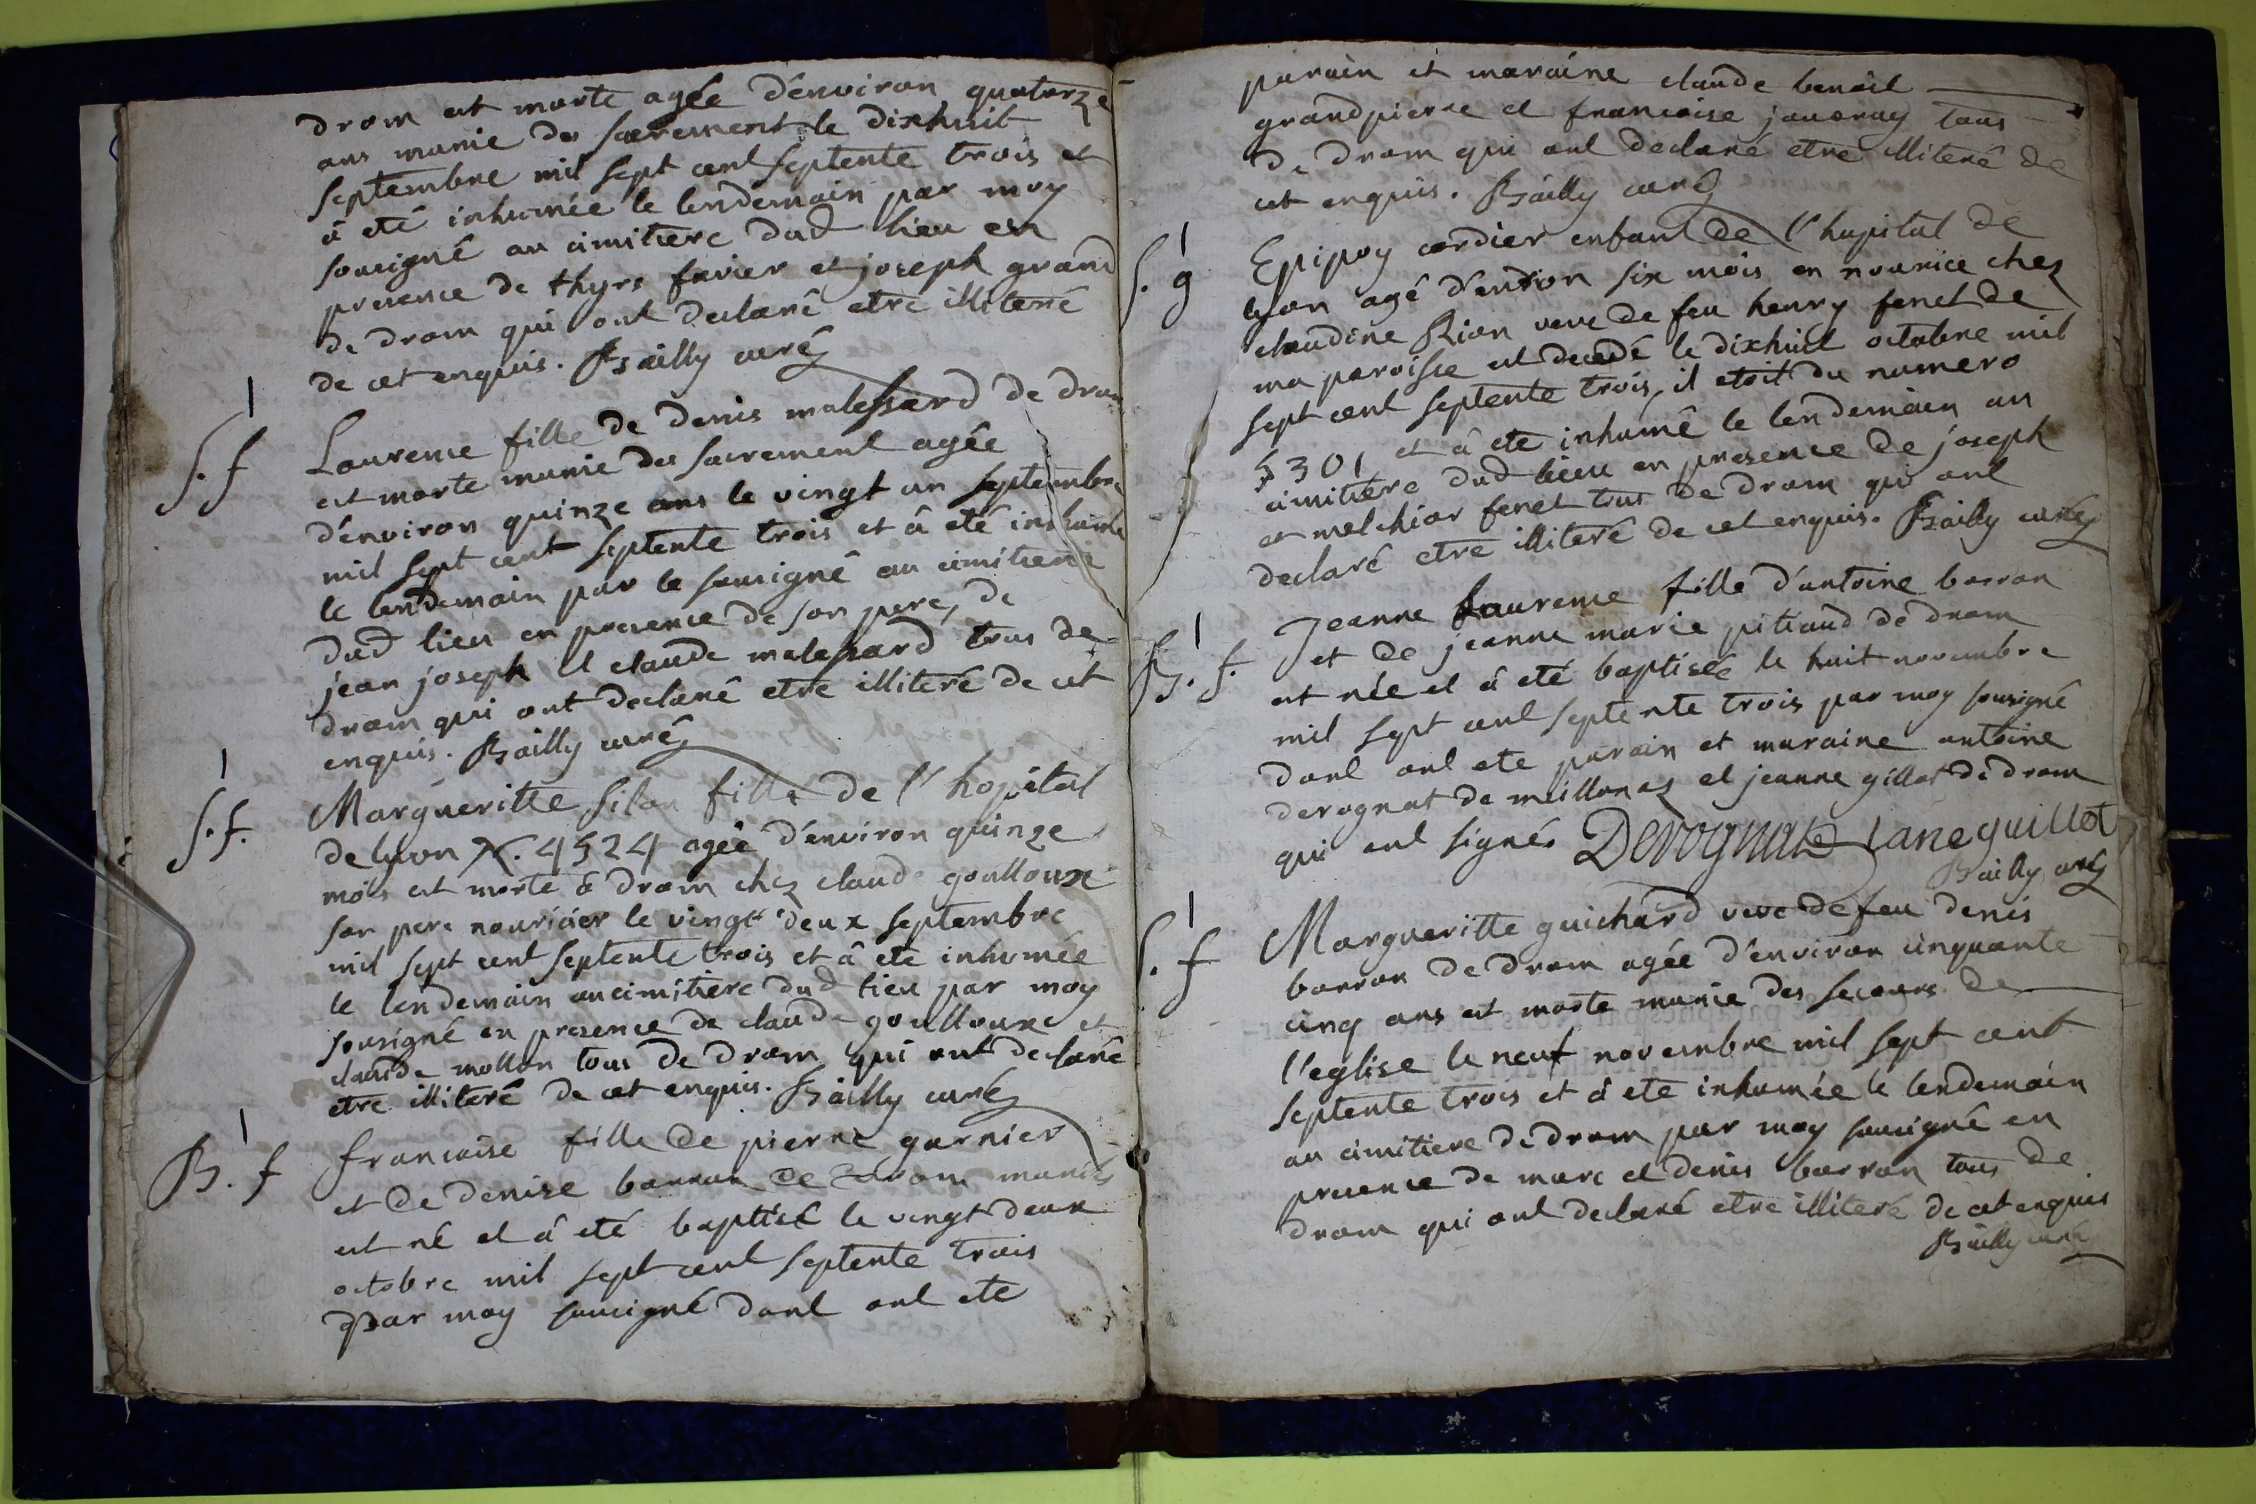 drom est morte agée d'environ quatorze
ans munie des sacrement le dixhuit
septembre mil sept cent septente trois et
â eté inhumée le lendemain par moy
sousigné au cimitiere dud lieu en
presence de thyrs favier et joseph grand
de drom qui ont declaré etre illiteré
de cet enquis. Bailly curé
1
S. f
Laurence fille de denis malessard de drom
est morte munie des sacrement agée
d'environ quinze ans le vingt un septembre
mil sept cent septente trois et â eté inhumé
le lendemain par le sousigné au cimitiere
dud lieu en presence de son pere, de
jean joseph et claude malessard tous de
drom qui ont declaré etre illiteré de cet
enquis. Bailly curé
1
S. f.
Margueritte silon fille de l'hopital
de lyon N. 4524 agée d'environ quinze
mois est morte â drom chez claude goulloux
son pere nouricier le vingt deux septembre
mil sept cent septente trois et â ete inhumée
le lendemain au cimitiere dud lieu par moy
sousigné en presence de claude goulloux et
claude mollon tous de drom qui ont declaré
etre illiteré de cet enquis. Bailly curé
1
B. f
francoise fille de pierre garnier
et de denise barron de drom mariés
est né et â eté baptisé le vingt deux
octobre mil sept cent septente trois
par moy sousigné dont ont ete
parain et maraine claude benoit
grandpierre et francoise javeray tous
de drom qui ont declaré etre illiteré de
cet enquis. Bailly curé
1
S. g
Epipoy cordier enfant de l'hopital de
lyon agé d'environ six mois en nourice chez
claudine Rion veuve de feu henry fenet de
ma paroisse est decedé le dixhuit octobre mil
sept cent septente trois, il etoit du numero
5301 et â ete inhumé le lendemain au
cimitiere dud lieu en presence de joseph
et melchior fenet tous de drom qui ont
declaré etre illiteré de cet enquis. Bailly curé
1
B. f.
Jeanne laurence fille d'antoine barron
et de jeanne marie pitiaud de drom
est née et â eté baptisée le huit novembre
mil sept cent septente trois par moy sousigné
dont ont ete parain et maraine antoine
derognat de meillonaz et jeanne gillot de drom
qui ont signés Derognat Janeguillot
Bailly curé
1
S. f
Margueritte guichard veve de feu denis
barron de drom agée d'environ cinquante
cinq ans est morte munie des secours de
l'eglise le neuf novembre mil sept cent
septente trois et â ete inhumée le lendemain
au cimitiere de drom par moy sousigné en
presence de marc et denis barron tous de
drom qui ont declaré etre illiteré de cet enquis
Bailly curé